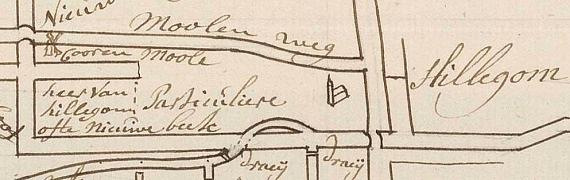 Nieuw
Moolen weg
Cooren Moole
Hillegom
heer van
hillegom Particuliere
ofte Nieuwe beek
Dracij Dracij